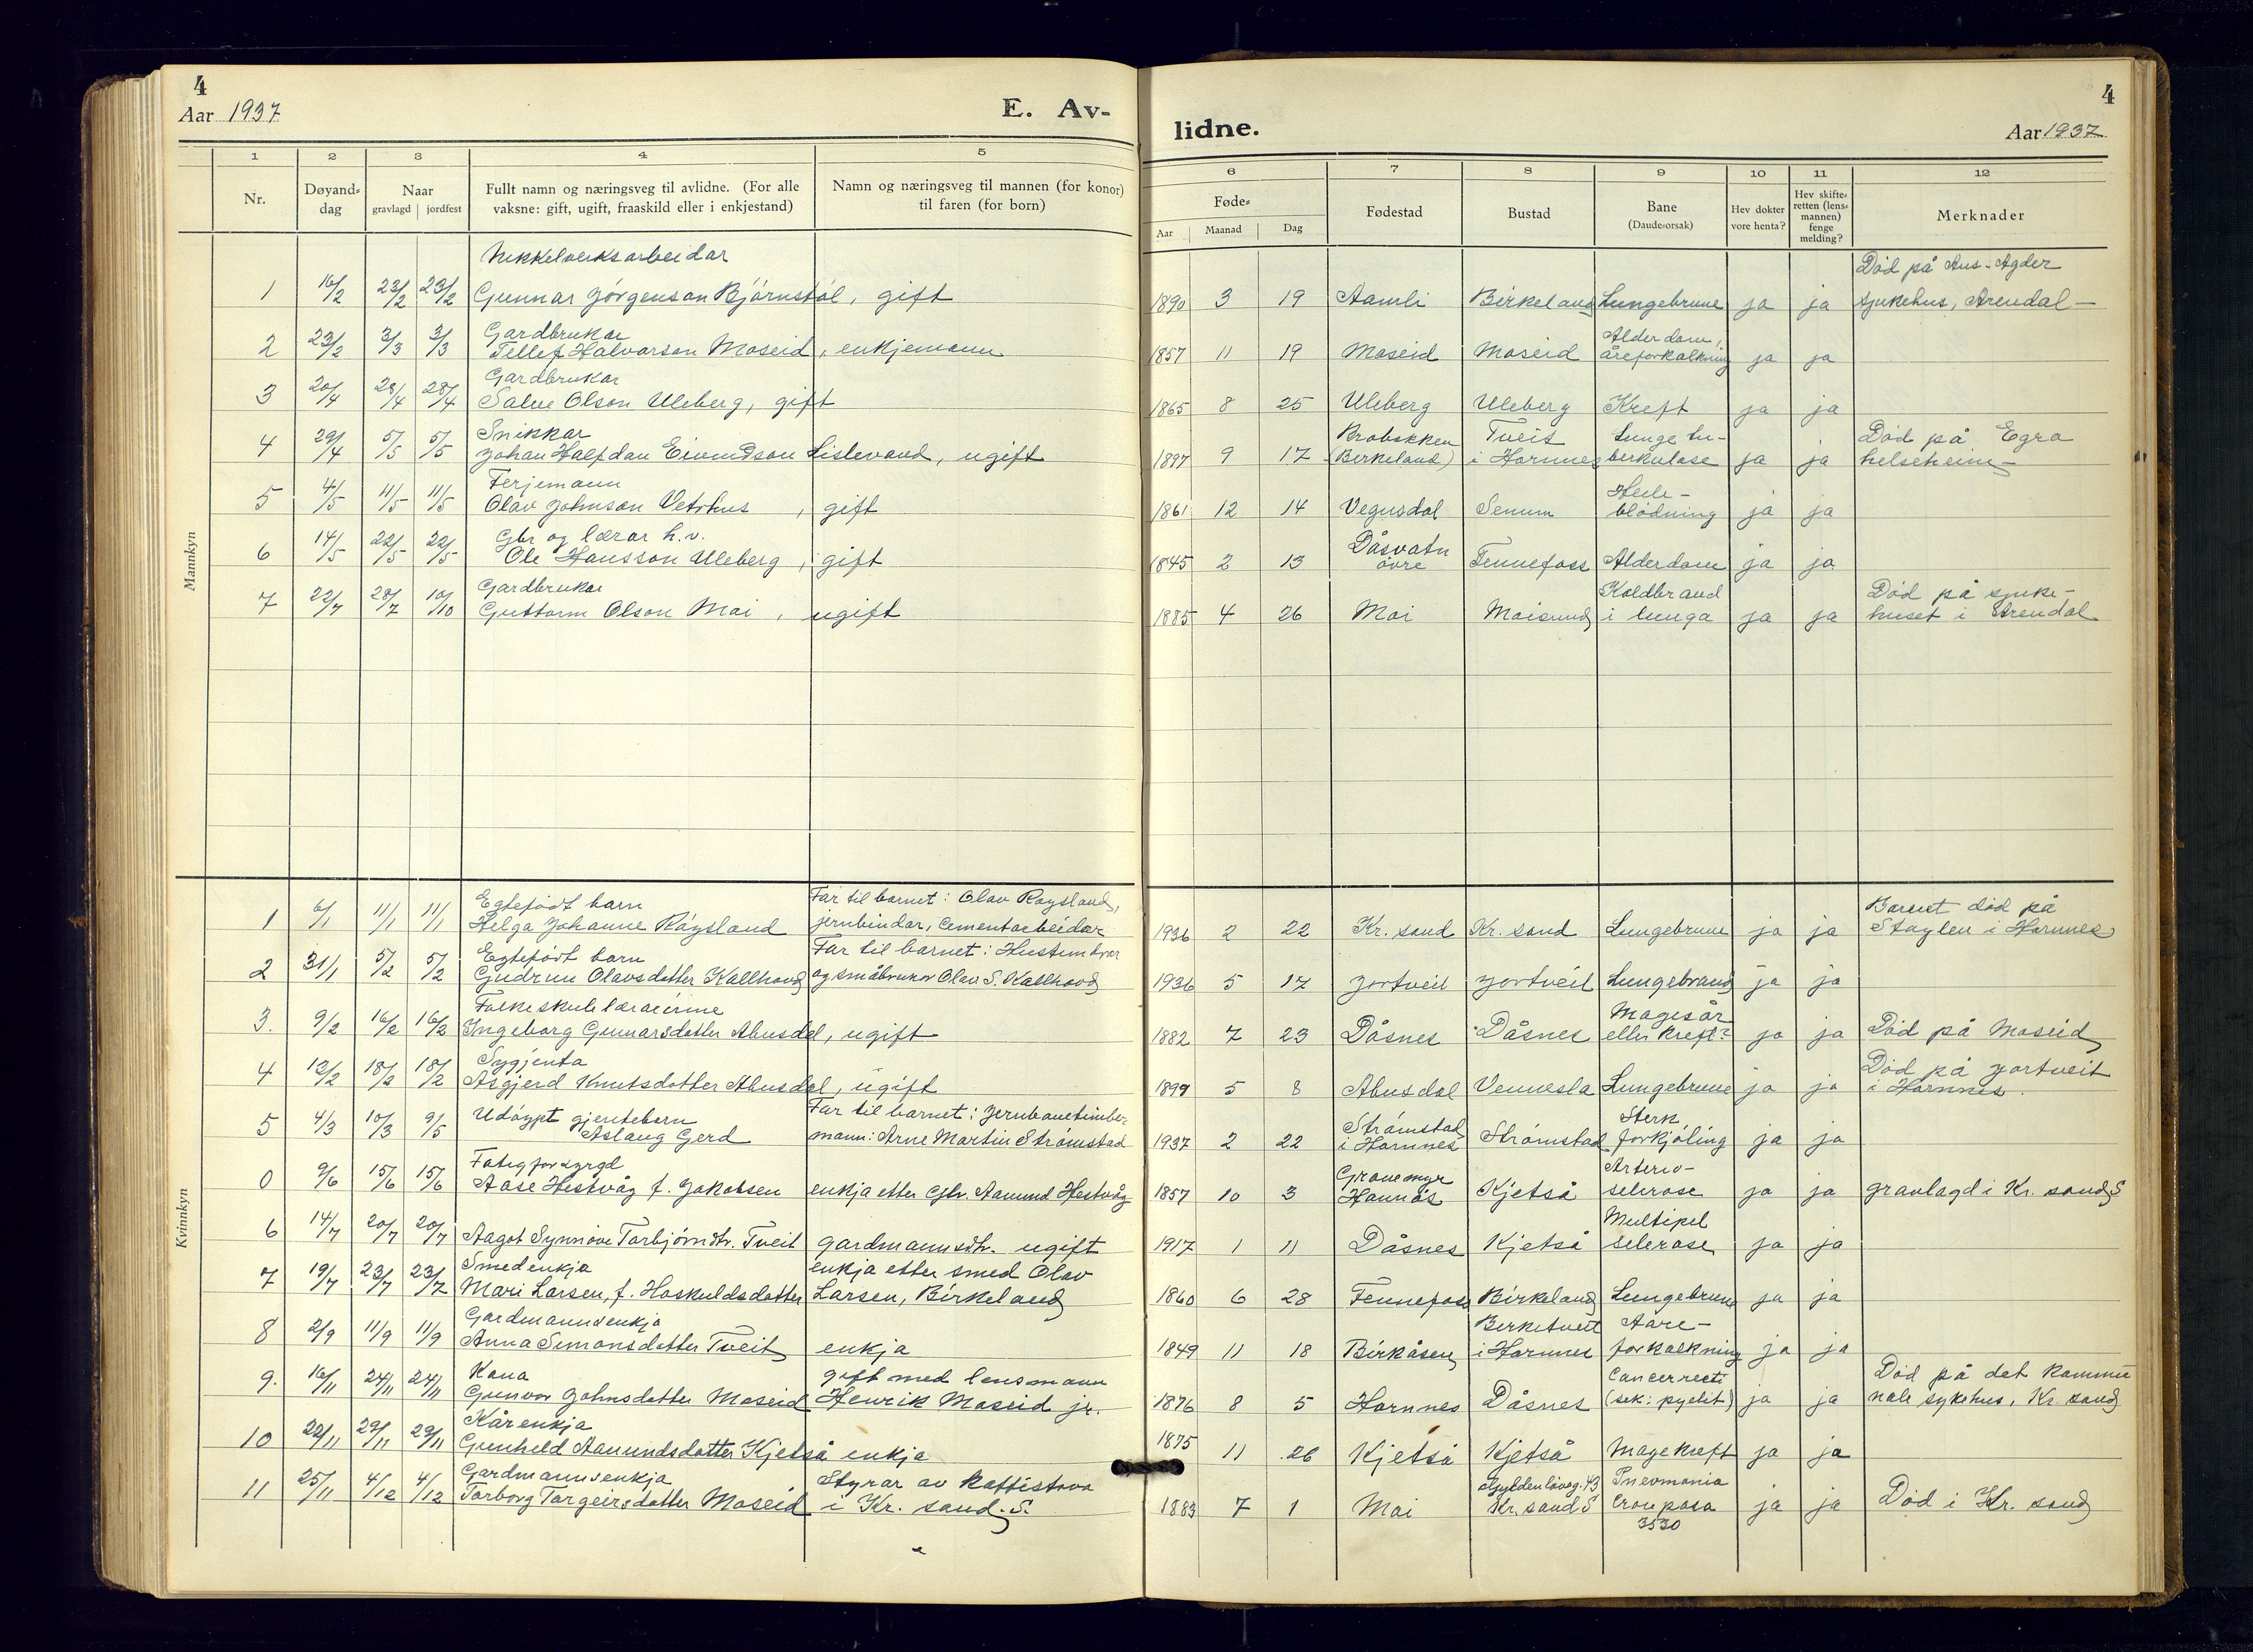 4
Aar 1937
E. Av-
lidne.
4
Aar 1937.
1 2 3 4 5
Nr. Døyand-dag Naar gravlagd jordfest Fullt namn og næringsveg til avlidne. (For alle vaksne: gift, ugift, fraaskild eller i enkjestand) Namn og næringsveg til mannen (for konor) til faren (for born)
6 7 8 9 10 11 12
Føde- Aar Maanad Dag Fødestad Bustad Bane (Daude-orsak) Hev dokter vore henta? Hev skifte-retten (lens-mannen) fenge melding? Merknader
Mannkyn
Nikkelverksarbeidar Død på Aus-Agder
1 16/2 23/2 23/2 Gunnar Jörgenson Björnstöl, gift 1890 3 19 Aamli Birkeland Lungebrune ja ja sjukehus, Arendal
Gardbrukar Alderdom,
2 23/2 3/3 3/3 Tellef Halvorson Moseid, enkjemann 1857 11 19 Moseid Moseid åreforkalkning ja ja
Gardbrukar
3 20/4 28/4 28/4 Salve Olson Uleberg, gift 1865 8 25 Uleberg Uleberg Kreft ja ja
Snikkar Tveit Lunge tu- Död på Egra
4 29/4 5/5 5/5 Johan Halfdan Eivindson Lislevand, ugift 1897 9 17 (Birkeland) i Hornnes berkulose ja ja helseheim
Ferjemann
5 4/5 11/5 11/5 Olav Johnson Vetrhus, gift 1861 12 14 Vegusdal Senum blödning ja ja
Gbr og lærar h.v. Dåsvatn
6 14/5 22/5 22/5 Ole Hansson Uleberg, gift 1845 2 13 övre Fennefoss Alderdom ja ja
Gardbrukar Koldbrand Död på sjuke-
7 22/7 28/7 10/10 Guttorm Olson Moi, ugift 1885 4 26 Moi Moisund i lunga ja ja huset i Arendal
Kvinnkyn
Egtefödt barn Far til barnet: Olav Röysland, Barnet död på
1 6/1 11/1 11/1 Helga Johanne Röysland jernbindar, cementarbeidar 1936 2 22 Kr. sand Kr. sand Lungebrune ja ja Stöylen i Hornnes
Egtefödt barn Far til barnet: Hustimbrar
2 31/1 5/2 5/2 Gudrun Olavsdotter Kallhovd og småbrukar Olav S. Kallhovd 1936 5 17 Jortveit Jortveit Lungebrand ja ja
Folkeskulelærarinne Magesår
3. 9/2 16/2 16/2 Ingeborg Gunnarsdotter Abusdal, ugift 1882 7 23 Dåsnes Dåsnes eller kreft? ja ja Död på Moseid
Sygjenta Död på Jortveit
4 12/2 18/2 18/2 Asgjerd Knutsdotter Abusdal, ugift 1899 5 8 Abusdal Vennesla Lungebrune ja ja i Hornnes.
Udöypt gjentebarn Far til barnet: Jernbanetimber- Strömstad Sterk
5 4/3 10/3 9/5 Aslaug Gerd mann: Arne Martin Strömstad 1937 2 22 i Hornnes Strömstad forkjöling ja ja
Fatigforsyrgd Arterio-
0 9/6 15/6 15/6 Aase Hestvåg f. Jakobsen enkja etter gbr. Aamund Hestvåg 1857 10 3 Kjetså sclerose ja ja gravlagd i Kr. sand S
Multipel
6 14/7 20/7 20/7 Aagot Synnöve Torbjörndtr. Tveit gardmannsdtr. ugift 1917 1 11 Dåsnes Kjetså sclerose ja ja
Smedenkja enkja etter smed Olav
7 19/7 23/7 23/7 Mari Larsen, f. Hoskuldsdotter Larsen, Birkeland 1860 6 28 Fennefoss Birkeland Lungebrune ja ja
Gardmannsenkja Birketveit Aare-
8 2/9 11/9 11/9 Anna Simonsdotter Tveit enkja 1849 11 18 Birkåsen i Hornnes forkalkning ja ja
Kona gift med lensmann Cancer recti Död på det kommu
9. 16/11 24/11 24/11 Gunvor Johnsdotter Moseid Henrik Moseid jr. 1876 8 5 Hornnes Dåsnes (sek: pyelit) ja ja nale sykehus, Kr. sand
Kårenkja
10 22/11 29/11 29/11 Gunhild Aamundsdotter Kjetså enkja 1875 11 26 Kjetså Kjetså Magekreft ja ja
Gardmannsenkja Styrar av kaffistova Gyldenlövsg. 43 Pnevmonia
11 25/11 4/12 4/12 Torborg Torgeirsdotter Moseid i Kr. sand. S. 1883 7 1 Moi Kr. sand S crouposa ja ja Död i Kr. sand
3530